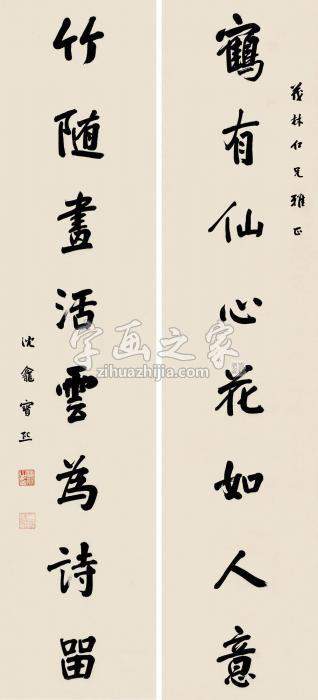 茂林仁兄雅正
鶴有仙心花如人意
竹随畫活雲為詩留
沈龕寶熙
字画之家
zihuazhijia.com